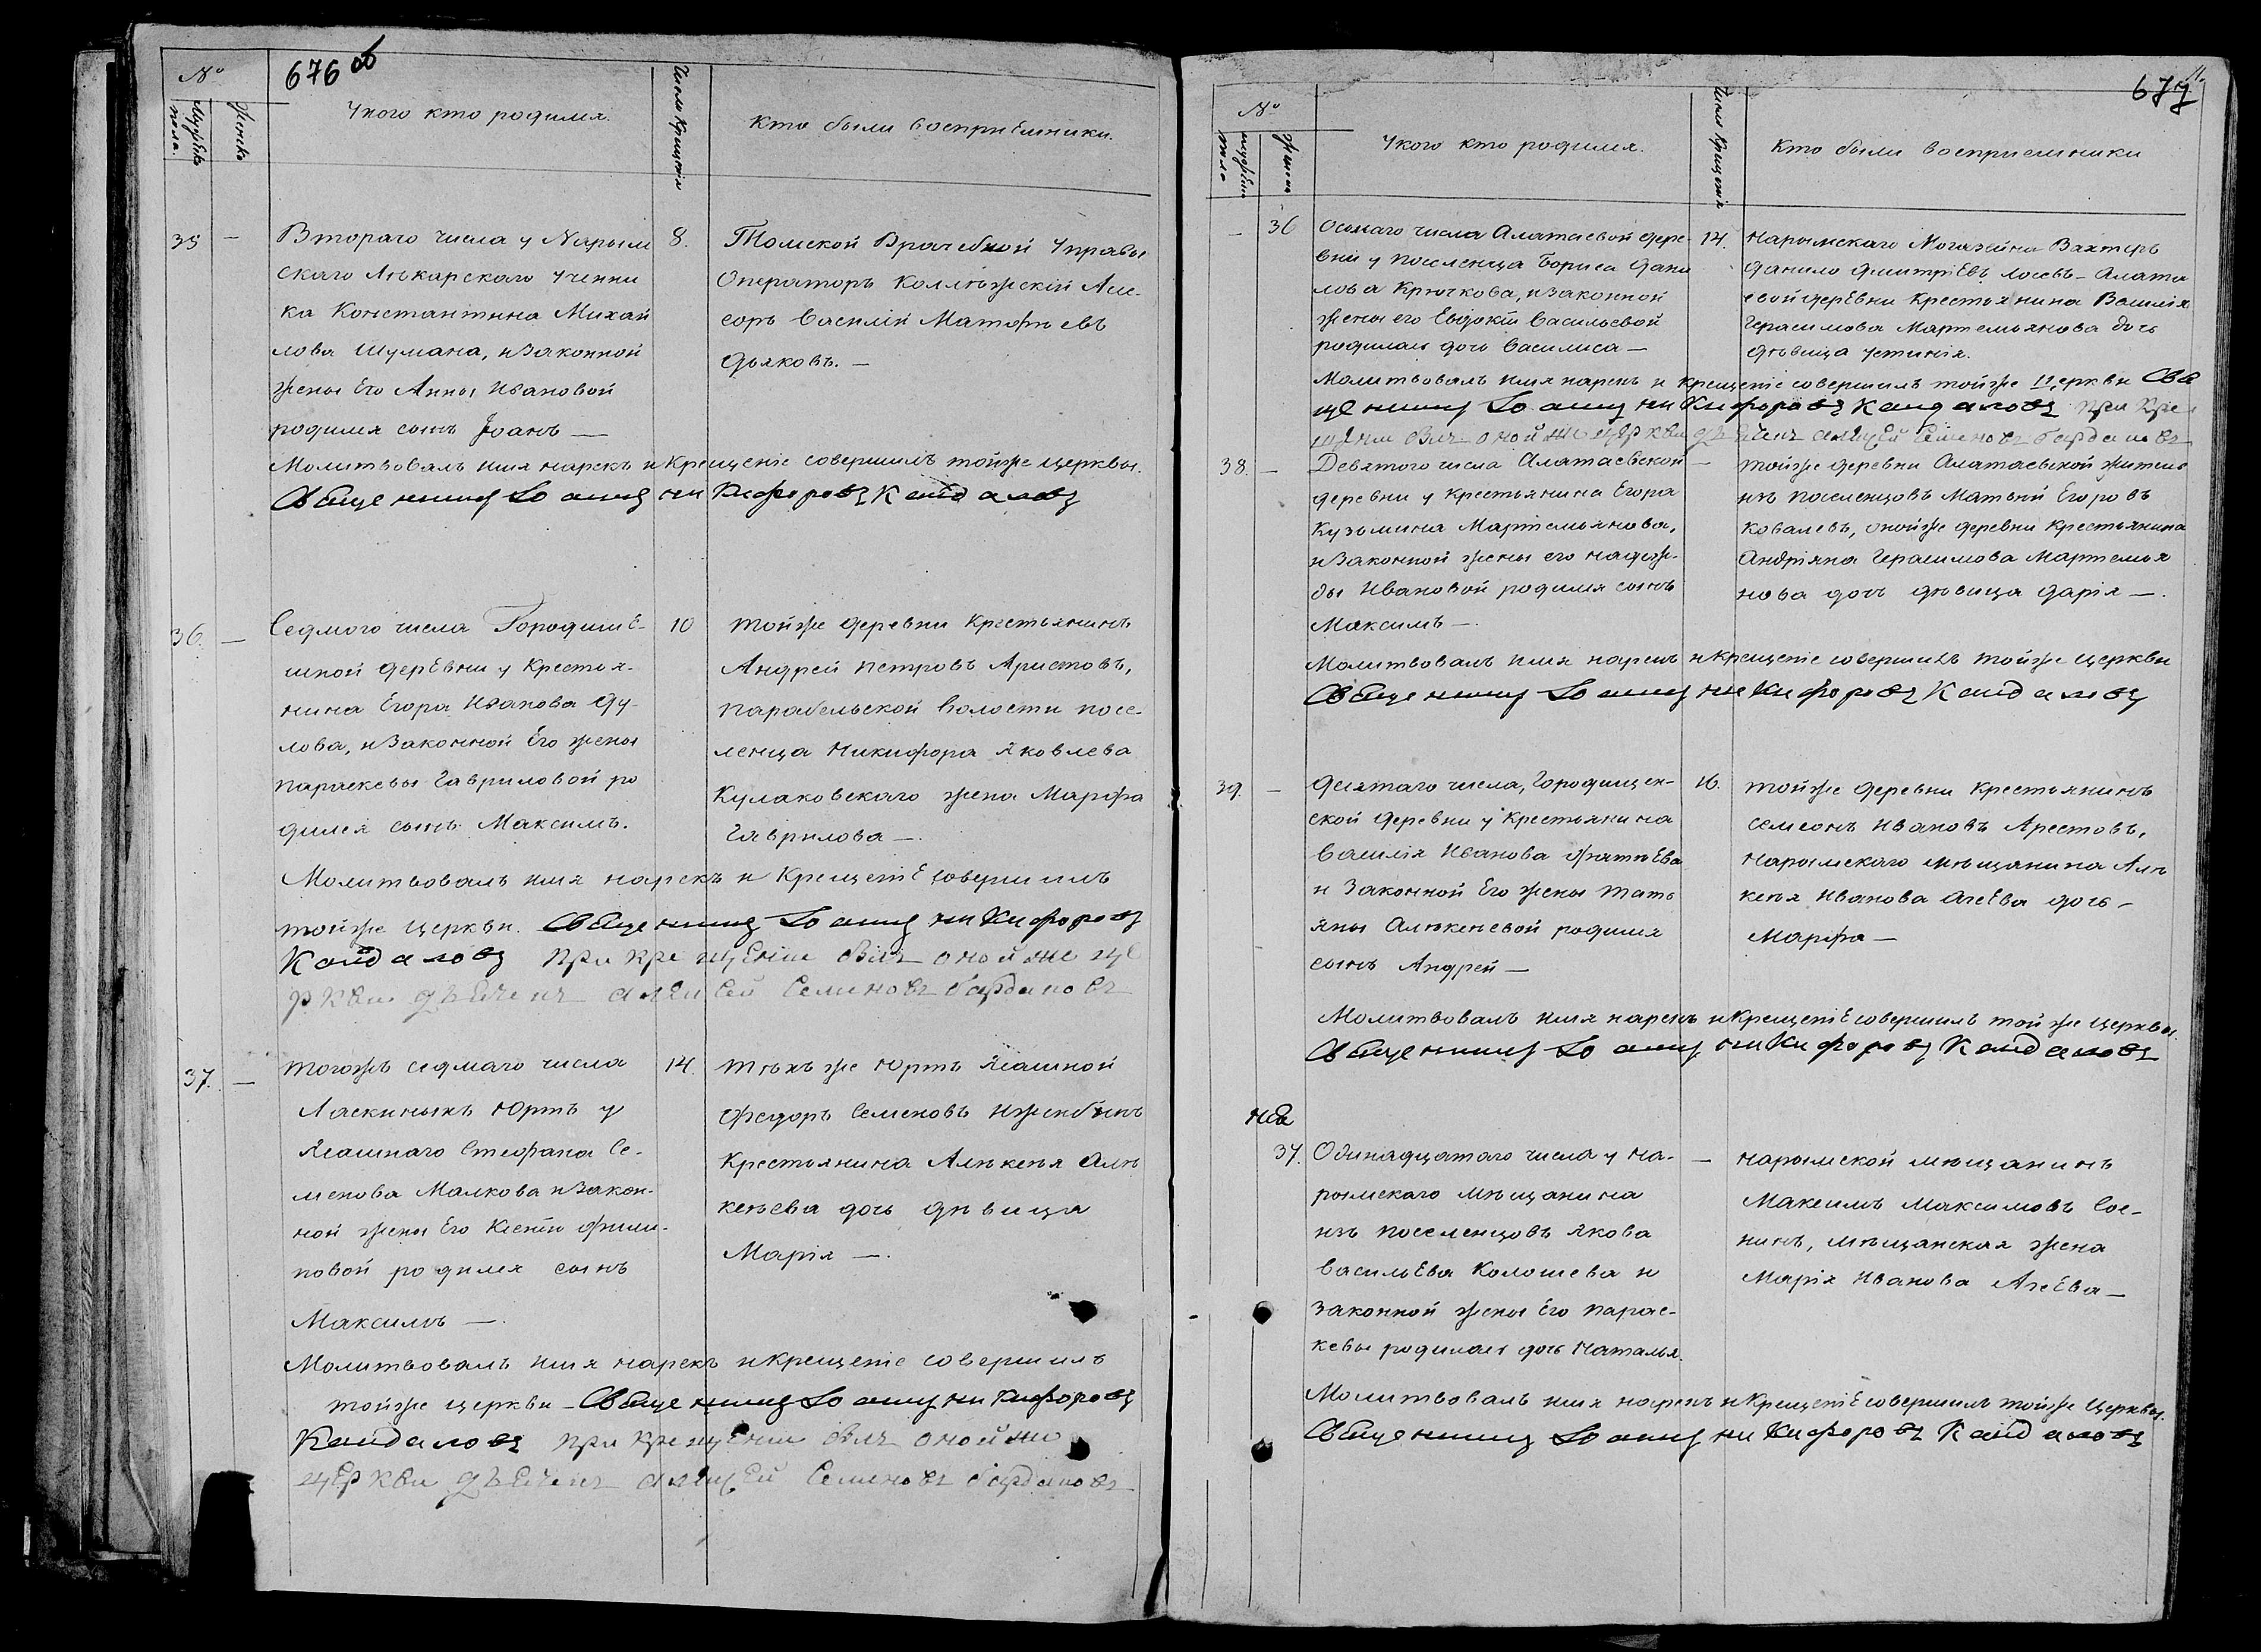 676 об
№
Мужска
пола.
Женска
У кого кто родился.
Число Крещенія
Кто были восприемники.
35 —
Втораго числа у Нарым
скаго Лѣкарскаго учени
ка Константина Михай
лова Шумана, и Законной
жены Его Анны Ивановой
родился сынъ Іоанъ —
8.
Томской Врачебной Управы
Операторъ Коллѣжскій Асе-
соръ Василій Матфѣевъ
Дьяковъ. —
Молитвовалъ имя нарекъ и Крещеніе совершилъ тойже церквы.
Священникъ Іоаннъ Никифоровъ Кайдаловъ
36. —
Седмого числа Городище-
шной деревни у Крестья-
нина Егора Иванова Ду-
лова, и Законной Его жены
Параскевы Гавриловой ро
дился сынъ Максимъ.
10
тойже деревни Крестьянинъ
Андрей Петровъ Аристовъ,
Парабельской Волости посе-
ленца Никифора Яковлева
Кулаковскаго жена Марфа
Гаврилова —.
Молитвовалъ имя нарекъ и Крещеніе совершилъ
тойже церкви. Священникъ Іоаннъ Никифоровъ
Кайдаловъ при крещеніи былъ оной же це
ркви дьячекъ Алексей Семеновъ
37. —
Тогожъ седмаго числа
Ласкиныхъ Юртъ у
Ясашнаго Стефана Се-
менова Малкова и Закон-
ной жены Его Ксеніи Фили-
повой родился сынъ
Максимъ —.
14.
тѣхъ же Юртъ Ясашной
Федоръ Семеновъ
Крестьянина Алѣксѣя Алѣ
ксѣева дочь дѣвица
Марія —.
Молитвовалъ имя нарекъ и крещеніе совершилъ
тойже церкви — Священникъ Іоаннъ Никифоровъ
Кайдаловъ при крещеніи былъ оной же
церкви дьячекъ Алексей Семеновъ
677
№
мужска
пола
Женска
У кого кто родился.
Число Крещенія
Кто были восприемники
— 36
Осьмаго числа Алатаевой дере-
вни у поселенца Бориса Дани
лова Крючкова, и Законной
жены его Евдокіи Васильевой
родилась дочь Василиса —
14.
Нарымскаго Могазейна Вахтеръ
Данило Дмитріевъ Лосевъ — Алата
евой деревни Крестьянина Василія
Герасимова Мартемьянова дочь
дѣвица Устинія.
Молитвовалъ имя нарекъ и крещеніе совершилъ тойже Церкви Свя
щенникъ Іоаннъ Никифоровъ Кайдаловъ при кре
щеніи былъ оной же церкви дьячекъ Алексей Семеновъ
38. —
Девятого числа Алатаевской
деревни у Крестьянина Егора
Кузьмина Мартемьянова,
и Законной жены его Надеж-
ды Ивановой родился сынъ
Максимъ —.
—
тойже деревни Алатаевской житель
изъ поселенцовъ Матвѣй Егоровъ
Ковалевъ, оной же деревни крестьянина
Андріяна Герасимова Мартемья
нова дочь дѣвица Дарія —.
Молитвовалъ имя нарекъ и крещеніе совершилъ тойже церкви
Священникъ Іоаннъ Никифоровъ Кайдаловъ
39. —
Десятаго числа, Городищен-
ской деревни у Крестьянина
Василія Иванова Фатѣева
и Законной Его жены Тать
яны Алѣксѣевой родился
сынъ Андрей —
16.
тойже деревни Крестьянинъ
Семеонъ Ивановъ Арестовъ,
Нарымскаго мѣщанина Алѣ
ксѣя Иванова Агеева дочь —
Марфа —
Молитвовалъ имя нарекъ и Крещеніе совершилъ тойже церквы.
Священникъ Іоаннъ Никифоровъ Кайдаловъ
37.
Одинадцатаго числа у На-
рымскаго мѣщанина
изъ поселенцовъ Якова
Васильева Колошева и
законной жены Его Парас-
кевы родилась дочь Наталья.
—
Нарымской мѣщанинъ
Максимъ Максимовъ Сос-
нинъ, мѣщанская жена
Марія Иванова Агеева —
Молитвовалъ имя нарекъ и Крещеніе совершилъ тойже Церквы.
Священникъ Іоаннъ Никифоровъ Кайдаловъ